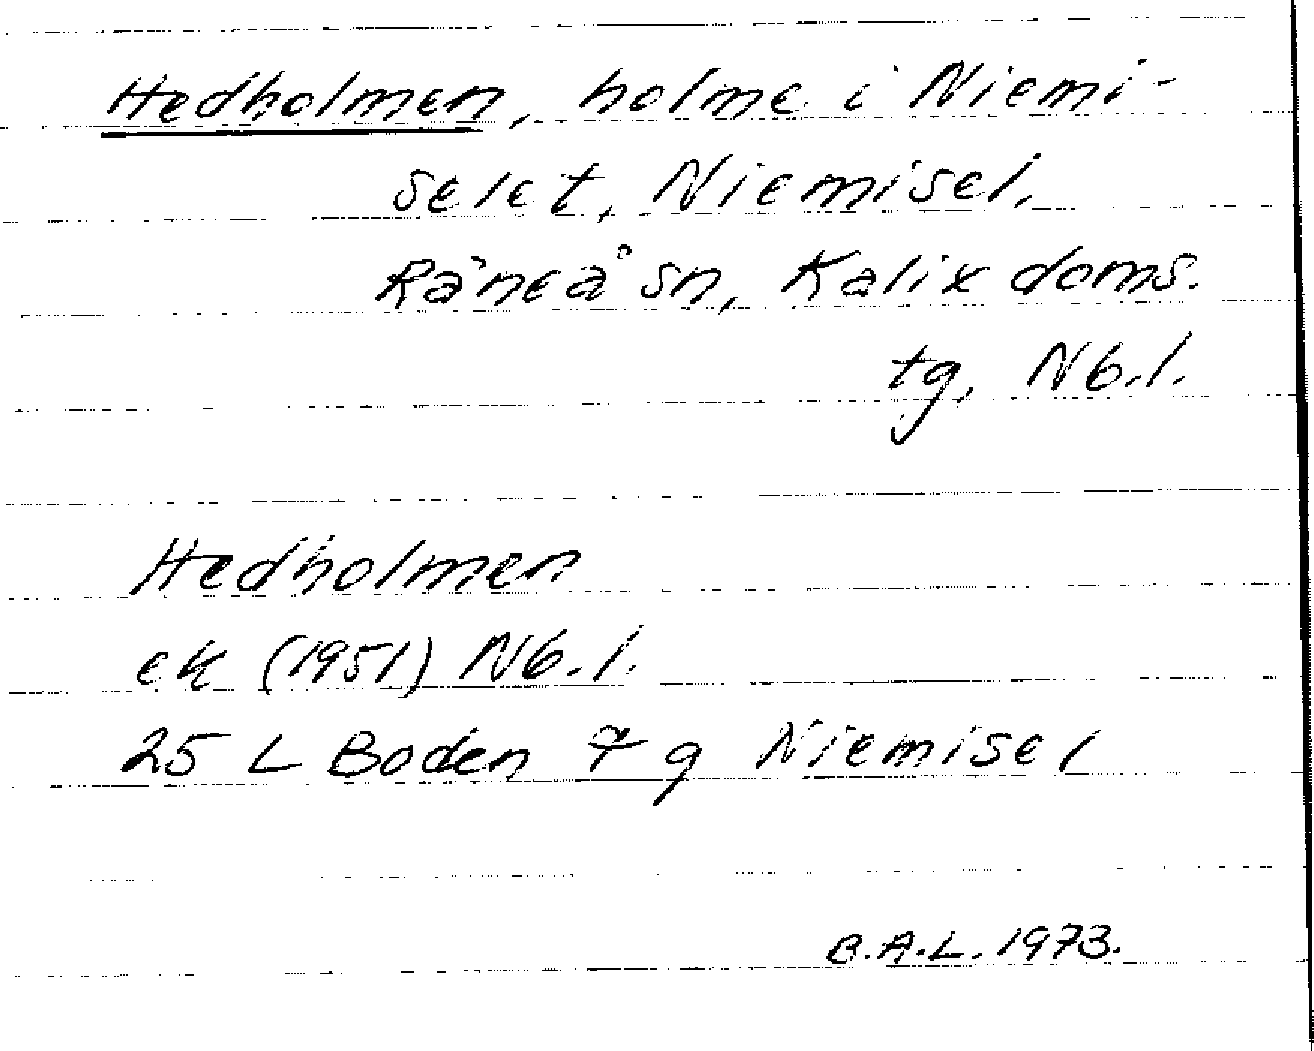 Hedholmen, holme i Niemi-
selet, Niemisel,
Råneå sn, Kalix doms.
tg, Nb.l.
Hedholmen
ek (1951) Nb.l.
25 L Boden 7 g Niemisel
B.A.L. 1973.